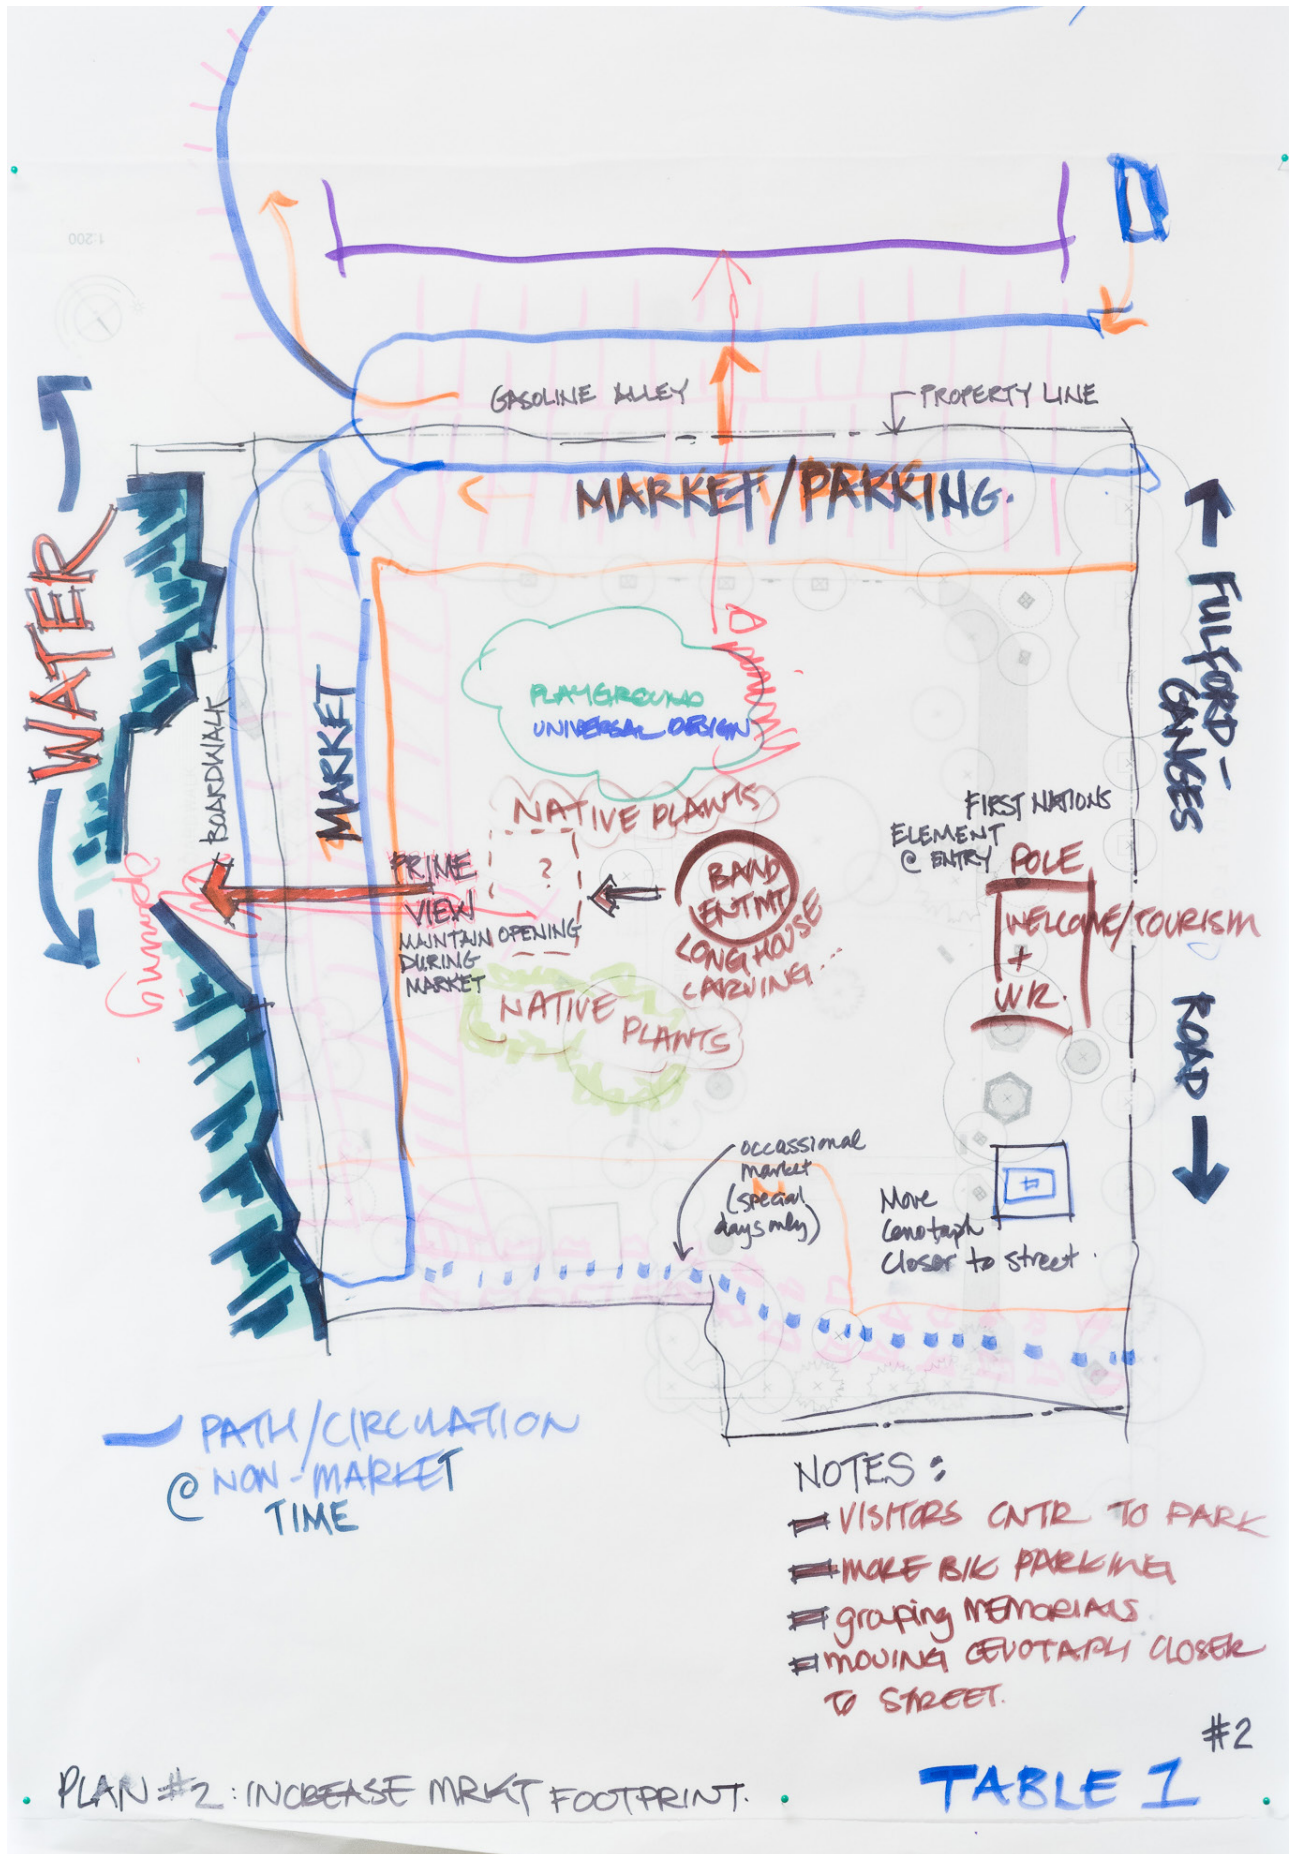 1:200
GASOLINE ALLEY
PROPERTY LINE
MARKET/PARKING.
WATER
BOARDWALK
MARKET
FULFORD-
GANGES
ROAD
PLAYGROUND
UNIVERSAL DESIGN
NATIVE PLANTS
?
PRIME
VIEW
MAINTAIN OPENING
DURING
MARKET
BAND
ENTMT
LONGHOUSE
CARVING...
NATIVE
PLANTS
FIRST NATIONS
ELEMENT
@ ENTRY
POLE
WELCOME/TOURISM
+
WR.
occassional
market
(special
days only)
Move
Cenotaph
Closer to street.
PATH/CIRCULATION
@ NON-MARKET
TIME
NOTES:
VISITORS CNTR TO PARK
MORE BIK PARKING
grouping MEMORIALS.
MOVING CENOTAPH CLOSER
TO STREET.
#2
PLAN #2: INCREASE MRKT FOOTPRINT.
TABLE 1